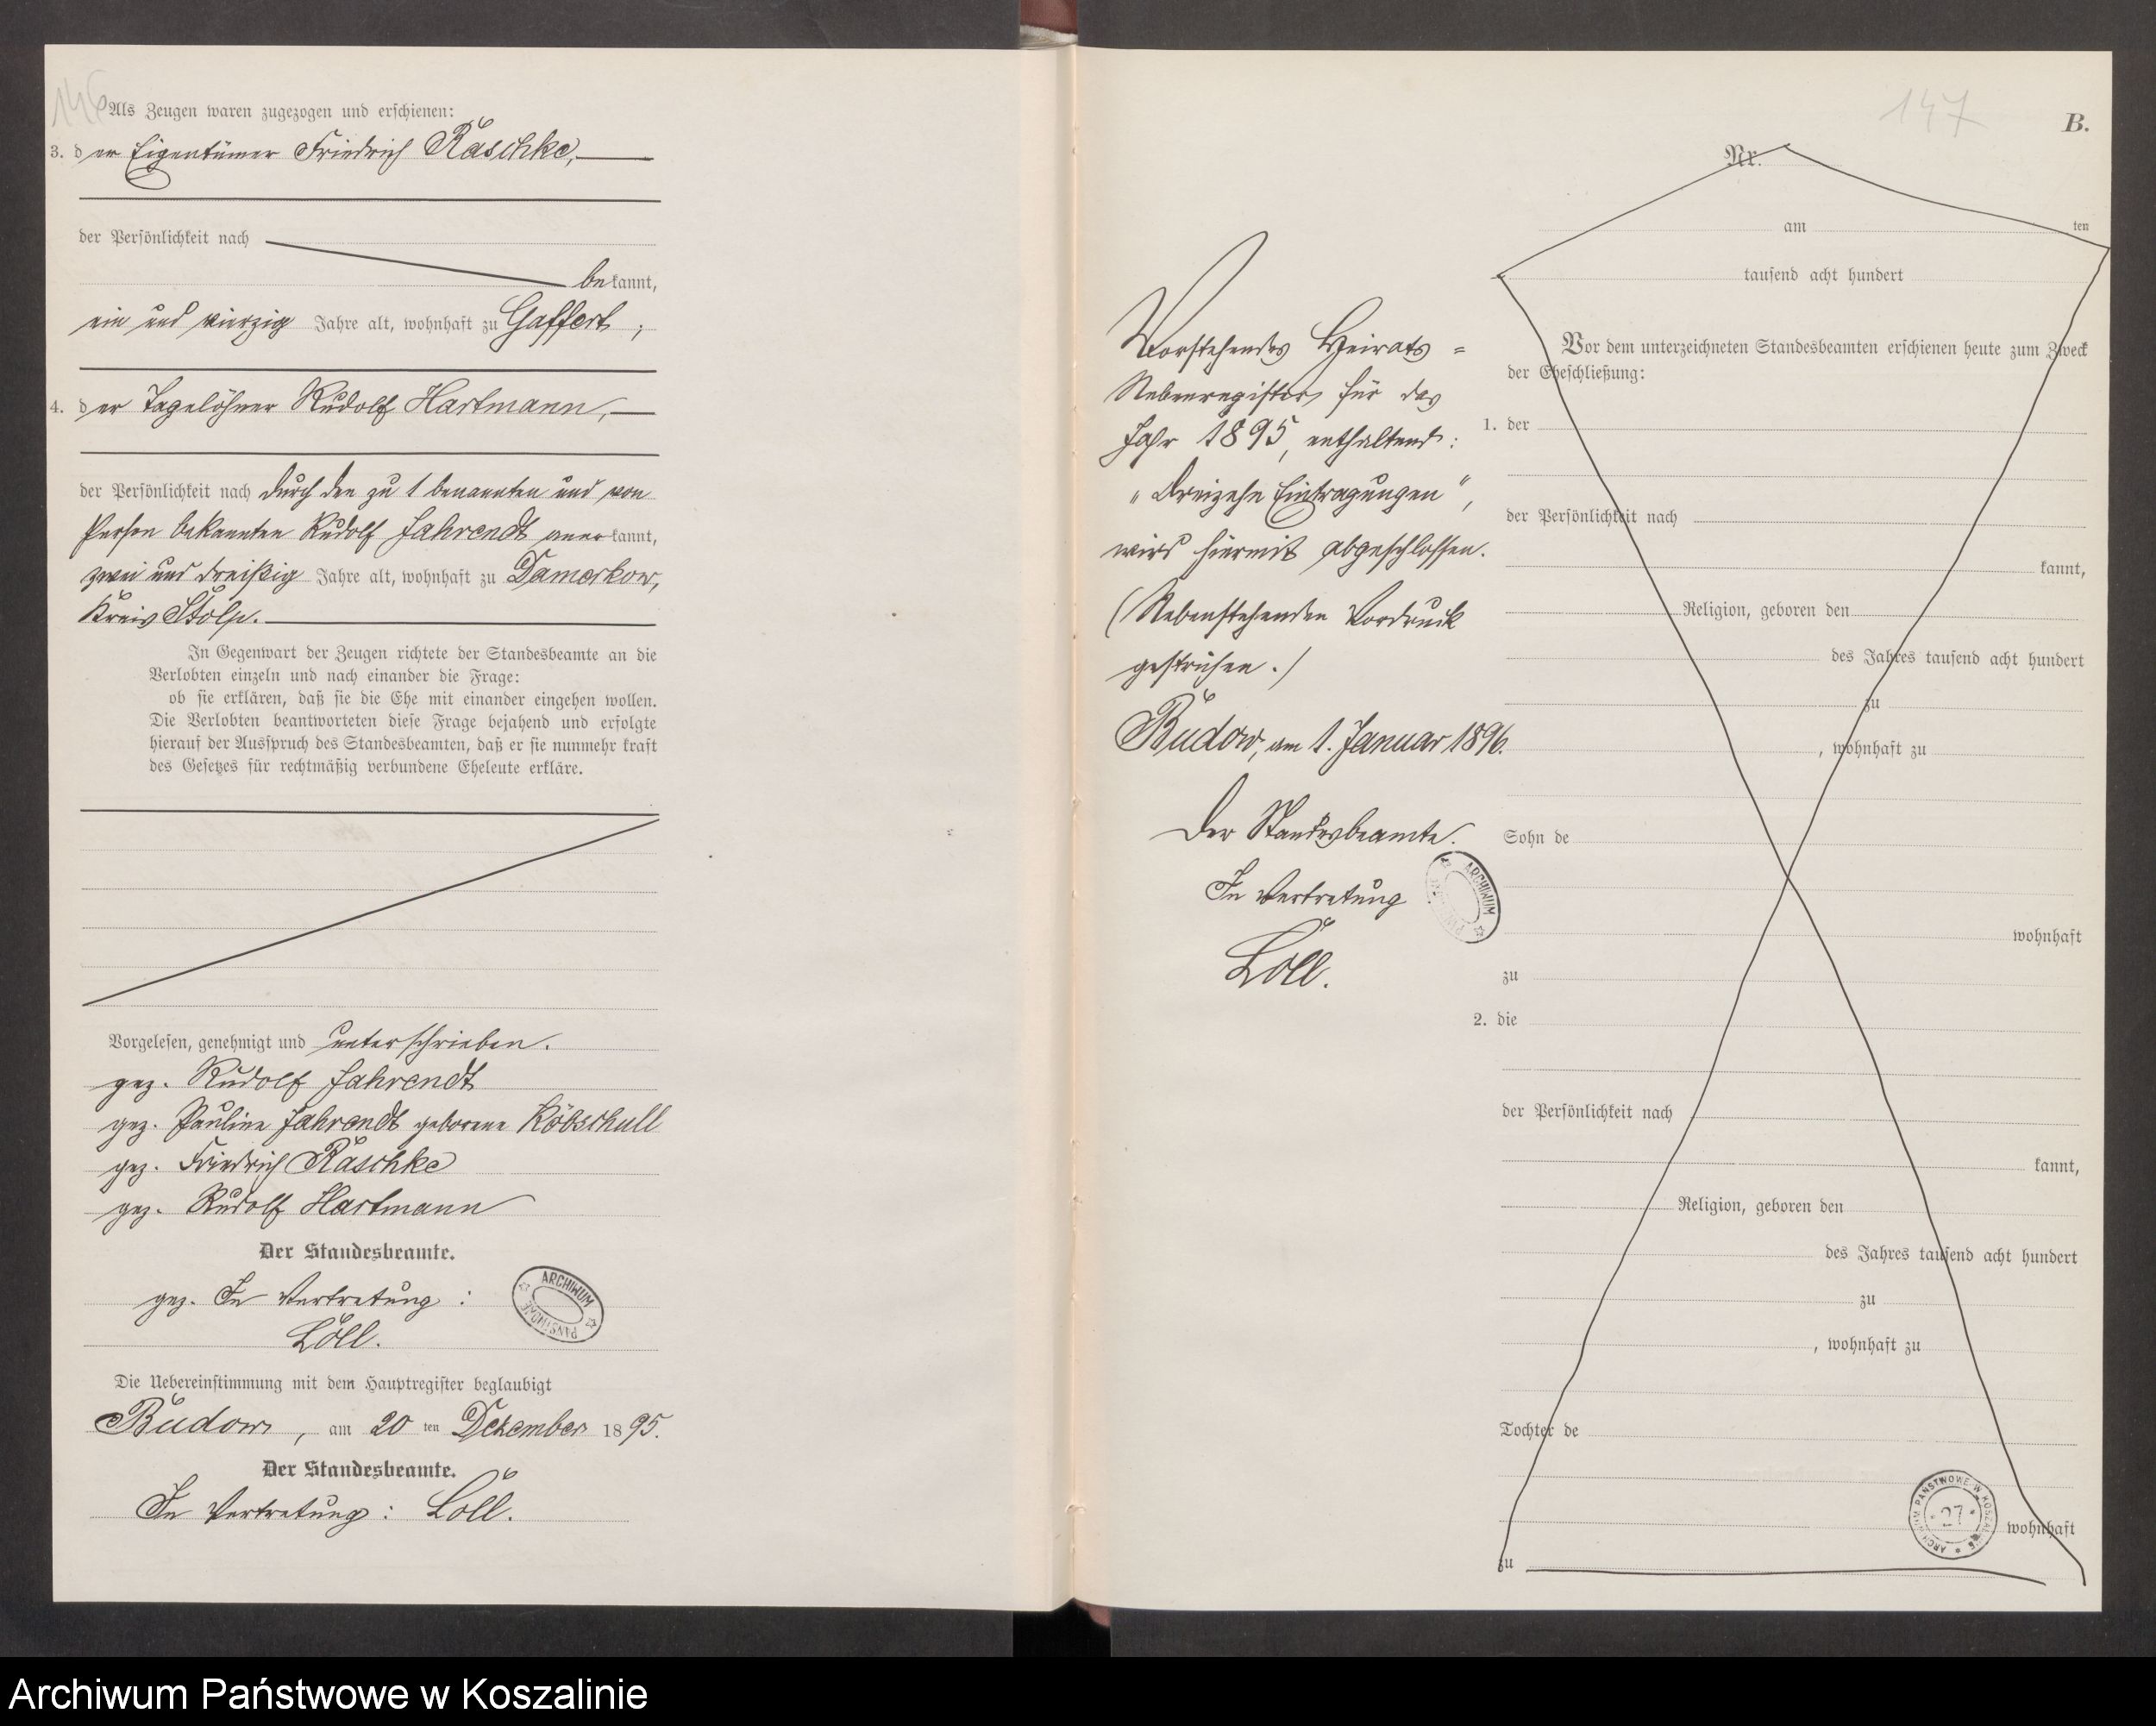 146
Als Zeugen waren zugezogen und erschienen:
3. der Eigentümer Friedrich Raschke,
der Persönlichkeit nach
bekannt,
ein und vierzig Jahre alt, wohnhaft zu Gaffert;
4. der Tagelöhner Rudolf Hartmann,
der Persönlichkeit nach durch den zu 1 benannten und von
Person bekannten Rudolf Fahrendt anerkannt,
zwei und dreißig Jahre alt, wohnhaft zu Damerkow,
Kreis Stolp.
In Gegenwart der Zeugen richtete der Standesbeamte an die
Verlobten einzeln und nach einander die Frage:
ob sie erklären, daß sie die Ehe mit einander eingehen wollen.
Die Verlobten beantworteten diese Frage bejahend und erfolgte
hierauf der Ausspruch des Standesbeamten, daß er sie nunmehr kraft
des Gesetzes für rechtmäßig verbundene Eheleute erkläre.
Vorgelesen, genehmigt und unterschrieben.
gez. Rudolf Fahrendt
gez. Pauline Fahrendt geborene Köbschull
gez. Friedrich Raschke
gez. Rudolf Hartmann
Der Standesbeamte.
gez. In Vertretung:
Löll.
ARCHIWUM PAŃSTWOWE
Die Uebereinstimmung mit dem Hauptregister beglaubigt
Budow, am 20 ten Dezember 1895.
Der Standesbeamte.
In Vertretung: Löll.
147
B.
Vorstehendes Heirats=
Nebenregister für das
Jahr 1895, enthaltend:
„Dreizehn Eintragungen“,
wird hiermit abgeschlossen.
(Nebenstehenden Vordruck
gestrichen.)
Budow, am 1. Januar 1896.
Der Standesbeamte.
In Vertretung
Löll.
ARCHIWUM
Nr.
am ten
tausend acht hundert
Vor dem unterzeichneten Standesbeamten erschienen heute zum Zweck
der Eheschließung:
1. der
der Persönlichkeit nach
kannt,
Religion, geboren den
des Jahres tausend acht hundert
zu
, wohnhaft zu
Sohn de
wohnhaft
zu
2. die
der Persönlichkeit nach
kannt,
Religion, geboren den
des Jahres tausend acht hundert
zu
, wohnhaft zu
Tochter de
wohnhaft
zu
ARCHIWUM PAŃSTWOWE W KOSZALINIE
27
Archiwum Państwowe w Koszalinie